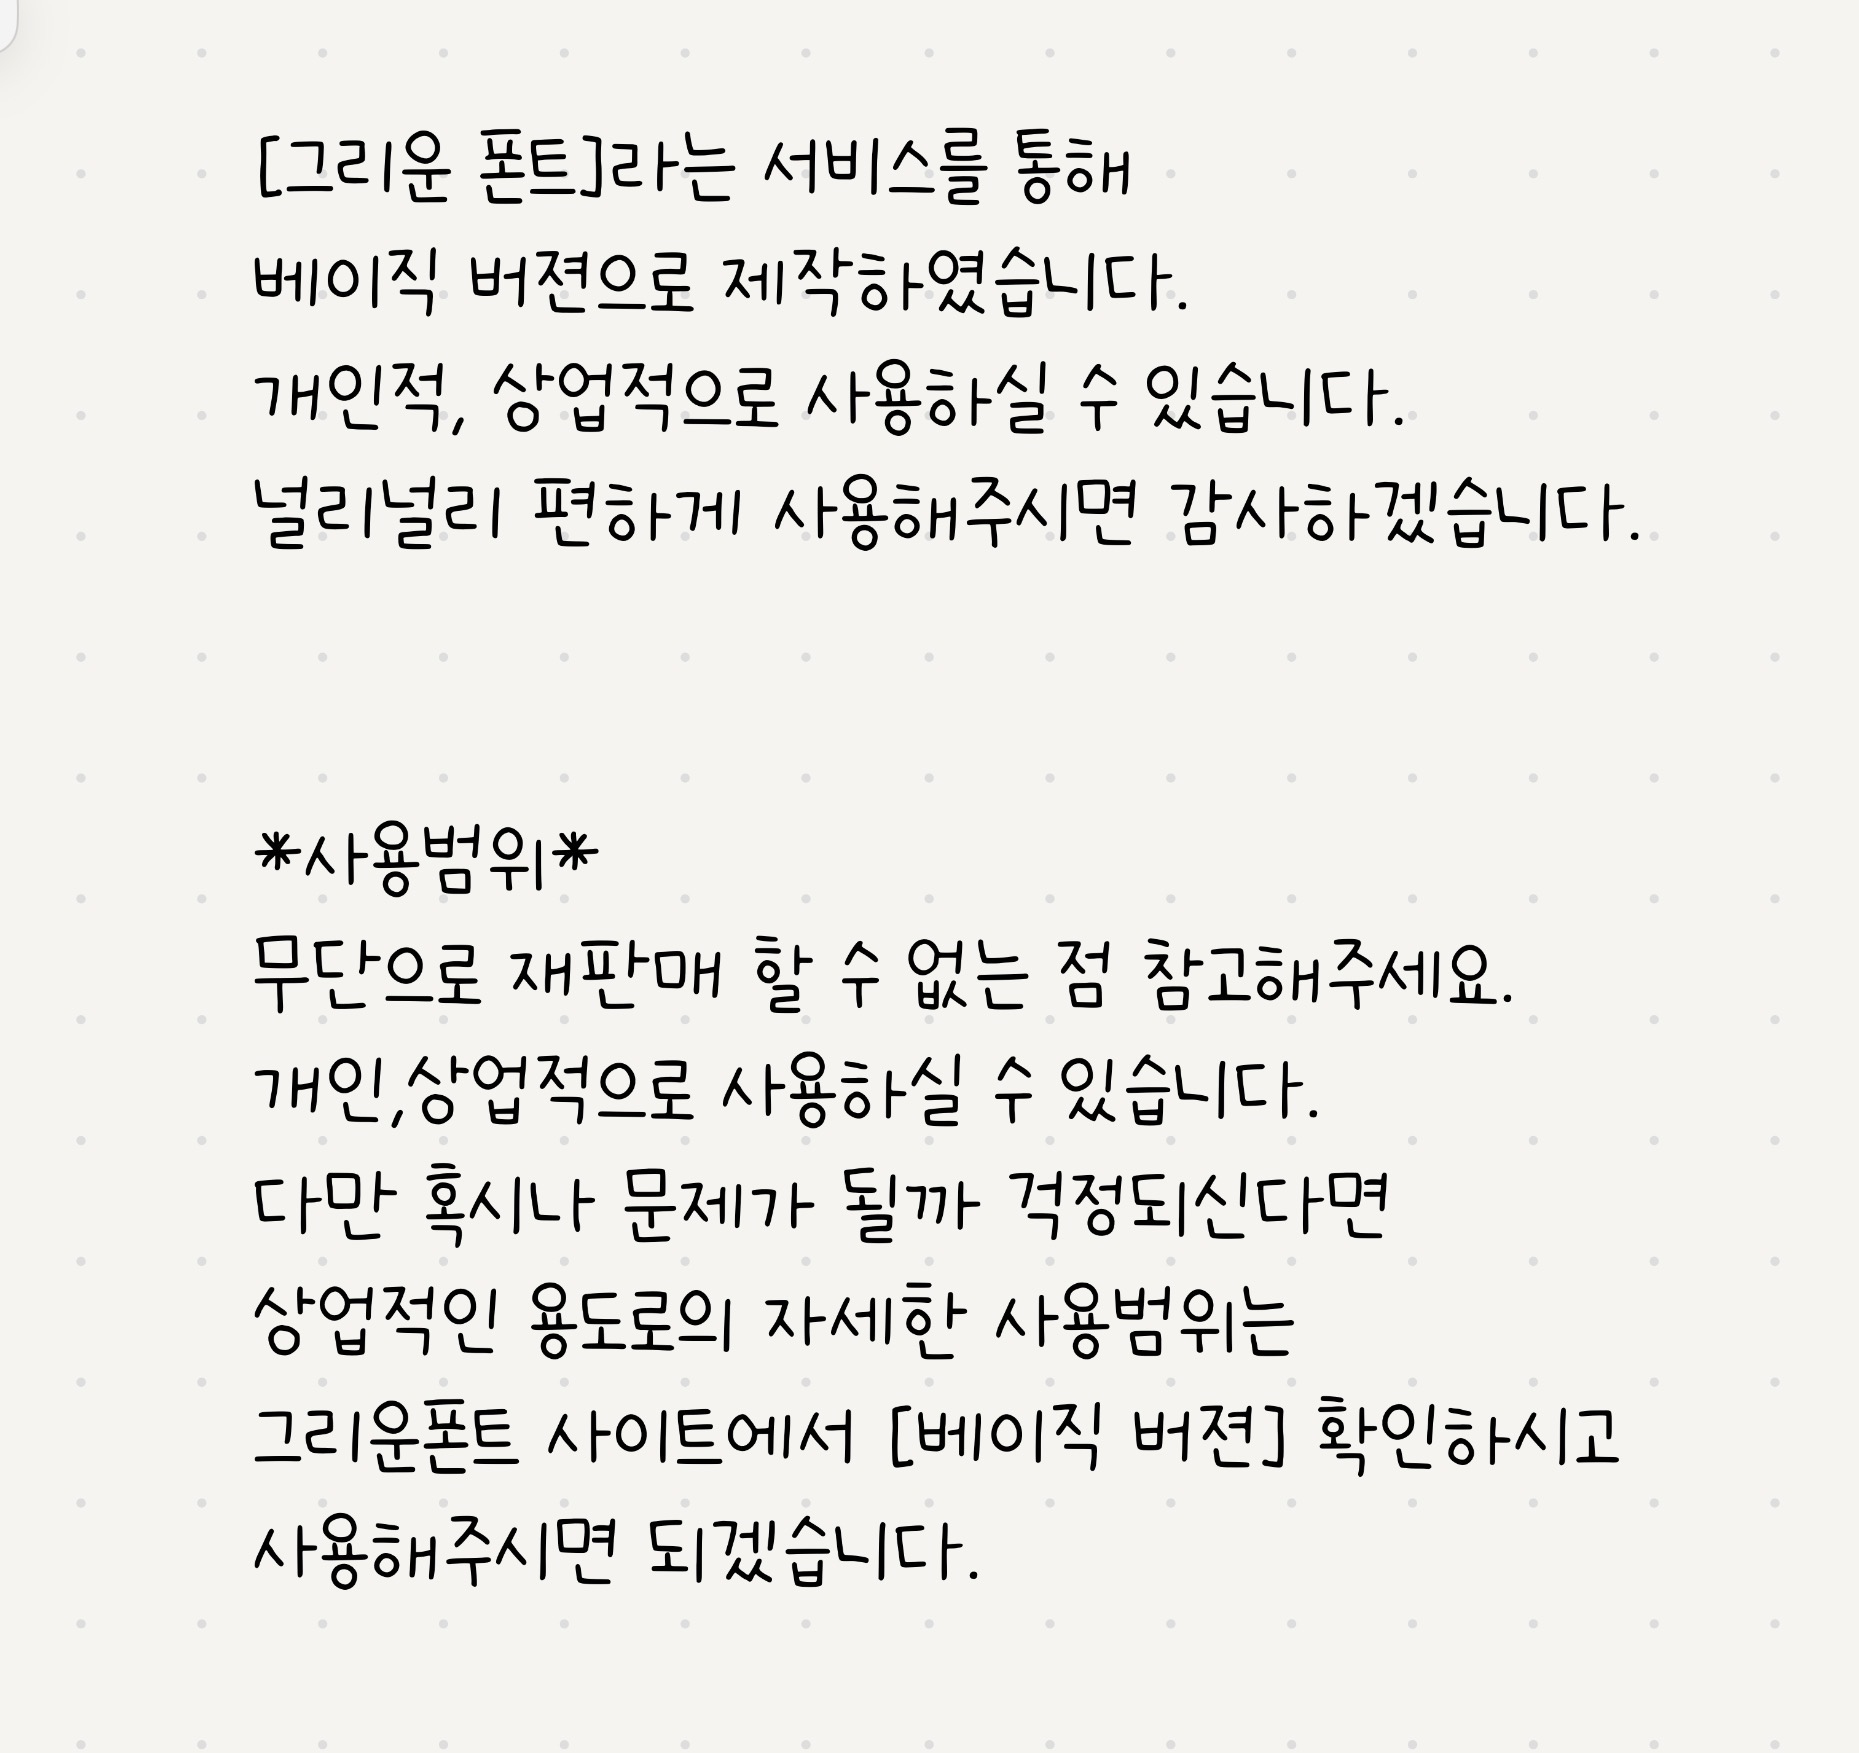 [그리운 폰트]라는 서비스를 통해
베이직 버젼으로 제작하였습니다.
개인적, 상업적으로 사용하실 수 있습니다.
널리널리 편하게 사용해주시면 감사하겠습니다.
*사용범위*
무단으로 재판매 할 수 없는 점 참고해주세요.
개인,상업적으로 사용하실 수 있습니다.
다만 혹시나 문제가 될까 걱정되신다면
상업적인 용도로의 자세한 사용범위는
그리운폰트 사이트에서 [베이직 버젼] 확인하시고
사용해주시면 되겠습니다.